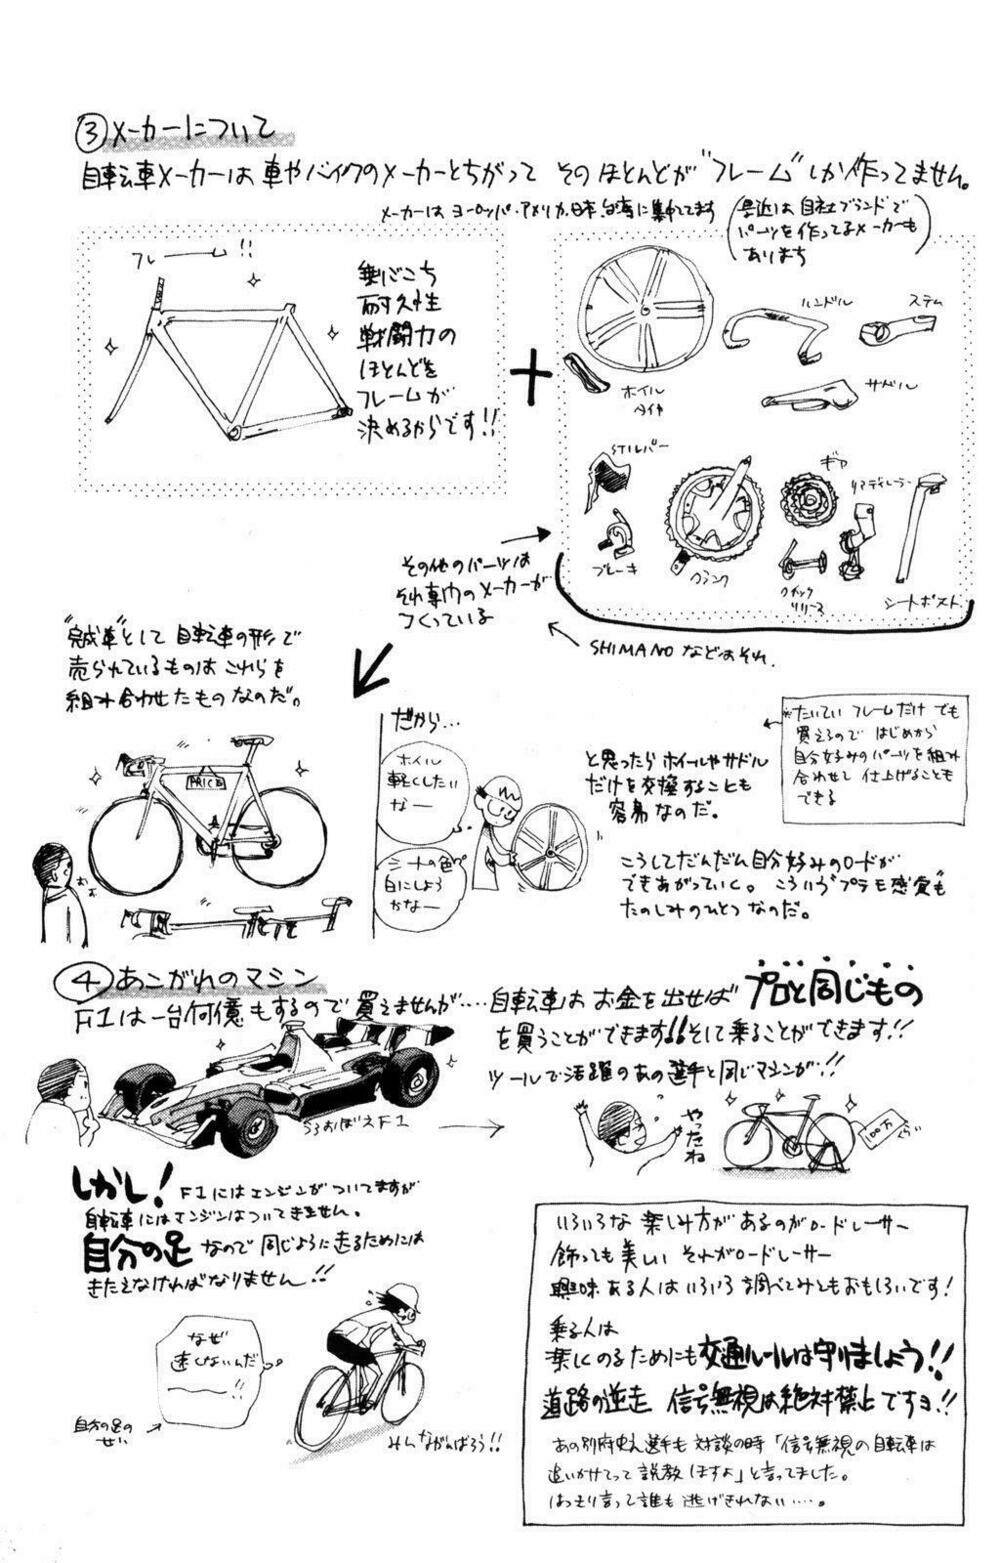 ③メーカーについて
自転車メーカーは車やバイクのメーカーとちがって そのほとんどが"フレーム"しか作ってません。
メーカーは ヨーロッパ・アメリカ・日本・台湾に集中してます
(最近は自社ブランドで
パーツを作ってるメーカーも
あります)
フレーム!!
乗りごこち
耐久性
戦闘力の
ほとんどを
フレームが
決めるからです!!
+
ホイル
タイヤ
ハンドル
ステム
サドル
STIレバー
ギア
リアディレーラー
ブレーキ
クランク
クイック
リリース
シートポスト
その他のパーツは
それ専門のメーカーが
つくっている
SHIMANOなどはそれ.
"完成車"として自転車の形で
売られているものはこれらを
組み合わせたものなのだ。
PRICE
おぉ
だから…
ホイル
軽くしたい
なー
シートの色
白にしよう
かなー
と思ったらホイールやサドル
だけを交換することも
容易なのだ。
※たいていフレームだけでも
買えるので はじめから
自分好みのパーツを組み
合わせて 仕上げることも
できる
こうしてだんだん自分好みのロードが
できあがっていく。こういう"プラモ感覚"も
たのしみのひとつなのだ。
④あこがれのマシン
F1は一台何億もするので買えませんが....自転車はお金を出せばプロと同じもの
を買うことができます!!そして乗ることができます!!
ツールで活躍のあの選手と同じマシンが!!
うろおぼえF1
やったね
100万くらい
しかし!F1にはエンジンがついてますが
自転車にはエンジンはついてきません。
自分の足なので同じように走るためには
きたえなければなりません!!
なぜ
速くないんだ
――!!
自分の足の
せい
みんながんばろう!!
いろいろな楽しみ方があるのがロードレーサー
飾っても美しい それがロードレーサー
興味ある人はいろいろ調べてみてもおもしろいです!
乗る人は
楽しくのるためにも交通ルールは守りましょう!!
道路の逆走 信号無視は絶対禁止ですヨ!!
あの別府史之選手も対談の時「信号無視の自転車は
追いかけてって説教しますよ」と言ってました。
はっきり言って誰も逃げきれない……。